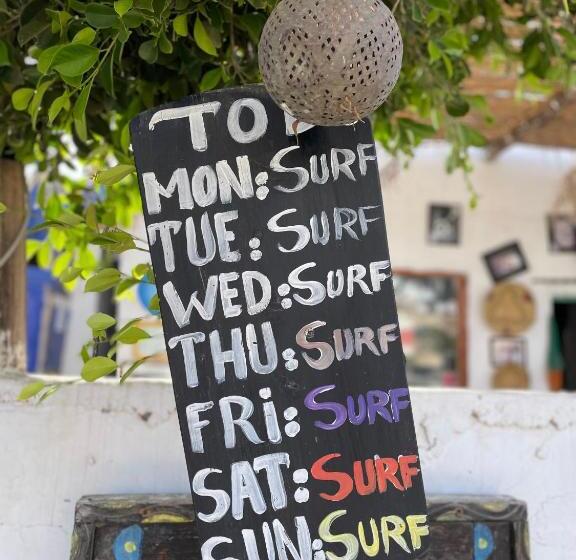 TO D
MON: SURF
TUE: SURF
WED: SURF
THU: SURF
FRi: SURF
SAT: SURF
SUN: SURF